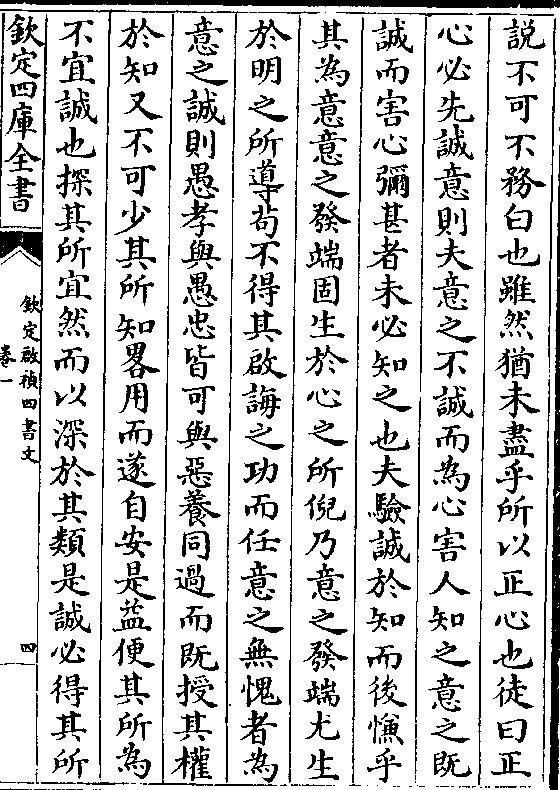 說不可不務白也雖然猶未盡乎所以正心也徒曰正
心必先誠意則夫意之不誠而為心害人知之意之既
誠而害心彌甚者未必知之也夫驗誠於知而後慊乎
其為意意之發端固生於心之所倪乃意之發端尤生
於明之所導茍不得其啟誨之功而任意之無愧者為
意之誠則愚孝與愚忠皆可與惡養同過而既授其權
於知又不可少其所知畧用而遂自安是益便其所為
不宜誠也探其所宜然而以深於其類是誠必得其所
欽定四庫全書
欽定啟禎四書文
卷一
四